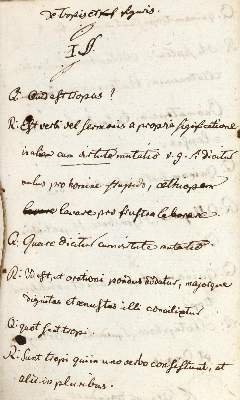 de Tropis et figuris.
I §.
Q: Quid est tropus?
R: Est verbi vel sermonis a propria significatione
in aliam cum virtute mutatio v. g. si dicatur
pro homine stupido, aethiopem
lavare pro frustra laborare
Q: Quare dicitur cum virtute mutatio.
R: Id est, ut orationi pondus addatur, majorque
dignitas et venustas illi concilietur
Q: quot sunt tropi.
R: Sunt tropi qui in uno verbo consistunt, et
alii in pluribus.